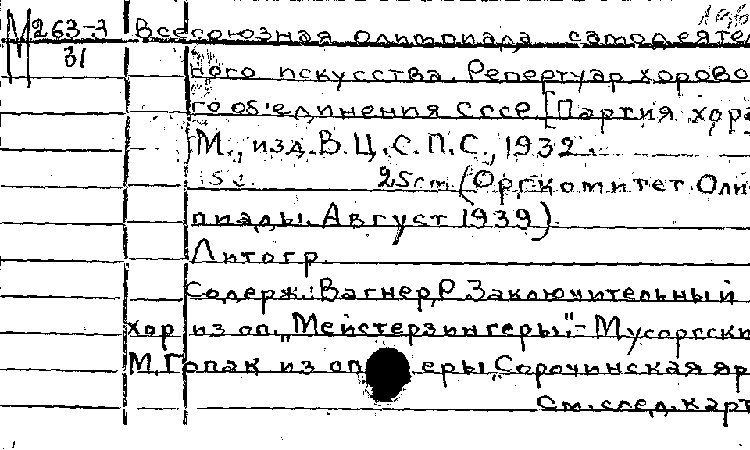 М 263-3 Всесоюзная олимпиада самодеятел
31 ного искусства. Репертуар хорово
го объединения СССР. [Партия хора
М., изд. В.Ц.С.П.С., 1932.
25 cm. (Оргкомитет Оли
пиады. Август 1939)
Литогр.
Содерж.: Вагнер, Р. Заключительный
хор из оп. „Мейстерзингеры".- Мусоргски
М. Гопак из оп еры „Сорочинская яр
См. след. карт